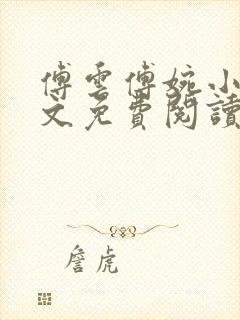 傅雲傅婉小
文免費閱讀
詹虎